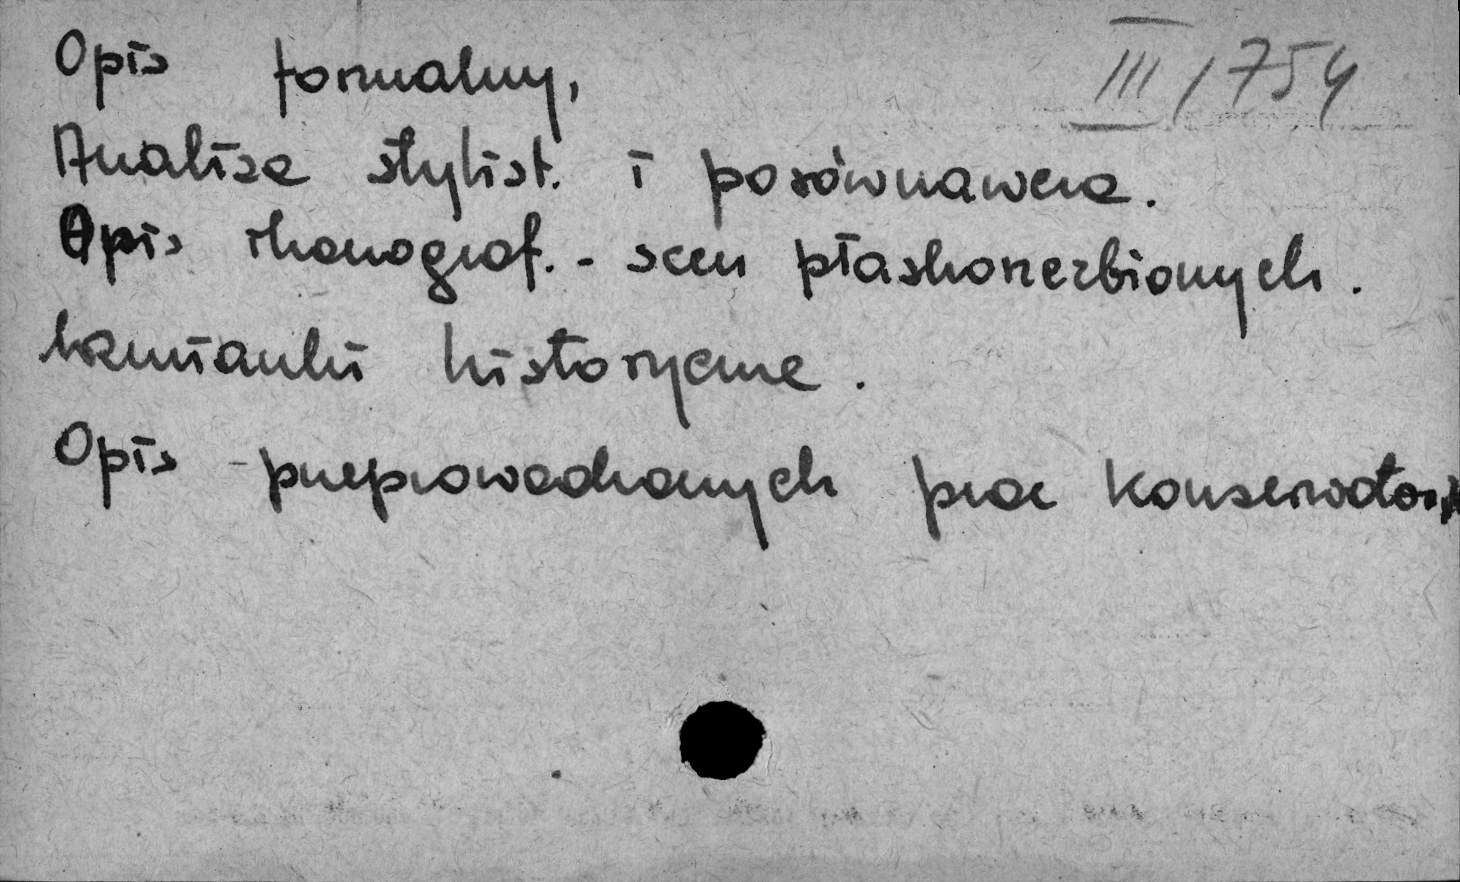 III/754
Opis formalny,
Analiza stylist. i porównawcza.
Opis ikonograf. - scen płaskorzeźbionych.
Wzmianki historyczne.
Opis przeprowadzonych prac konserwator.